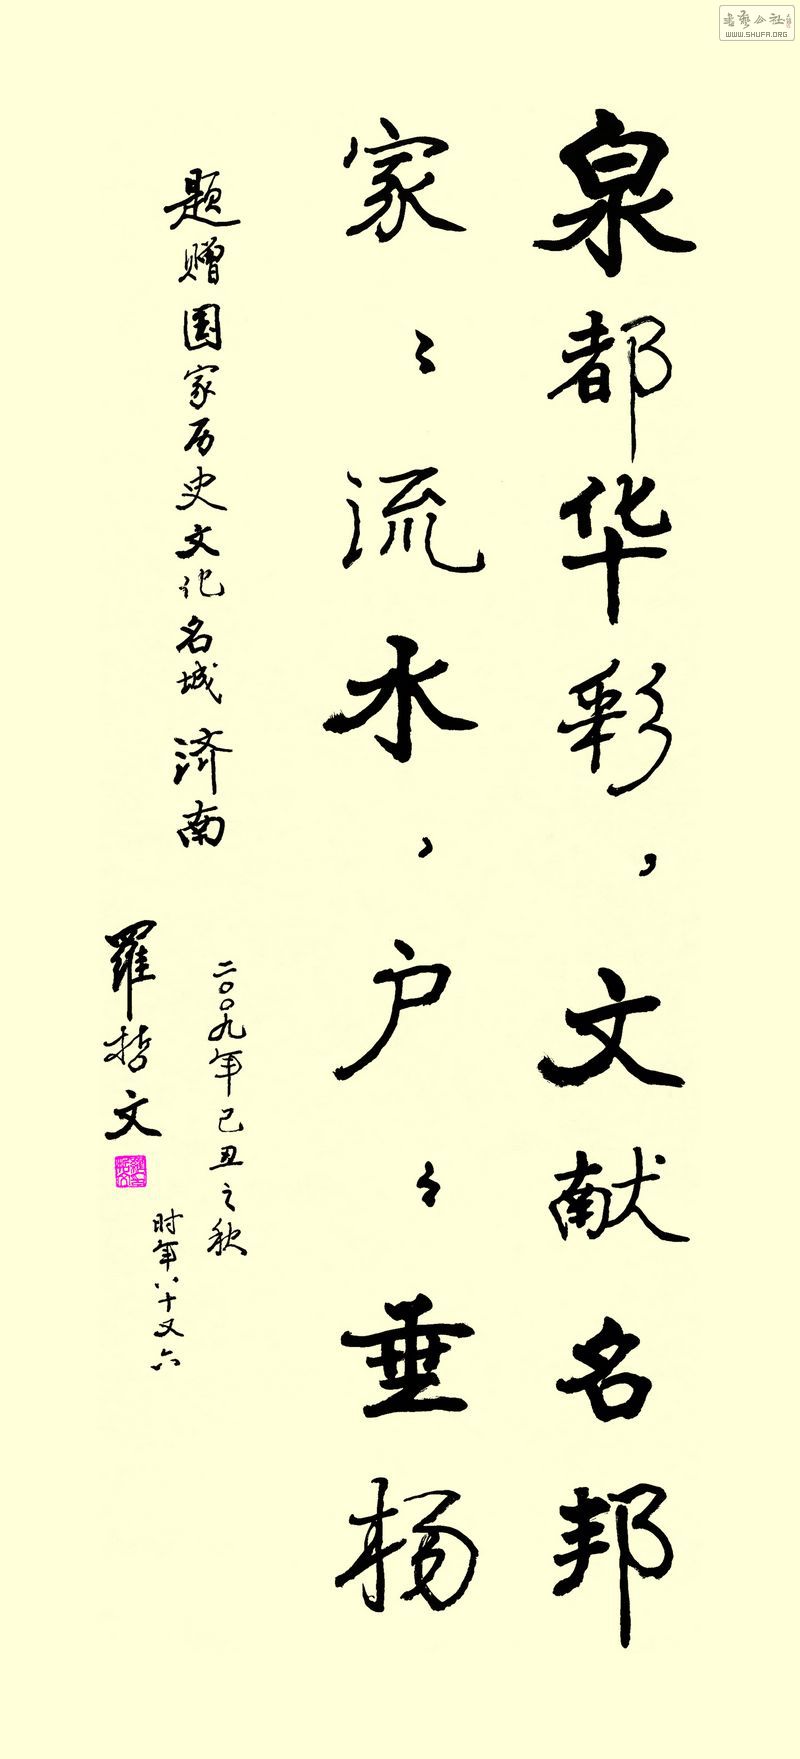 泉都华彩，文献名邦
家〻流水，户〻垂杨
题赠国家历史文化名城济南
二〇〇九年己丑之秋
罗哲文
时年八十又六
书艺公社
WWW.SHUFA.ORG